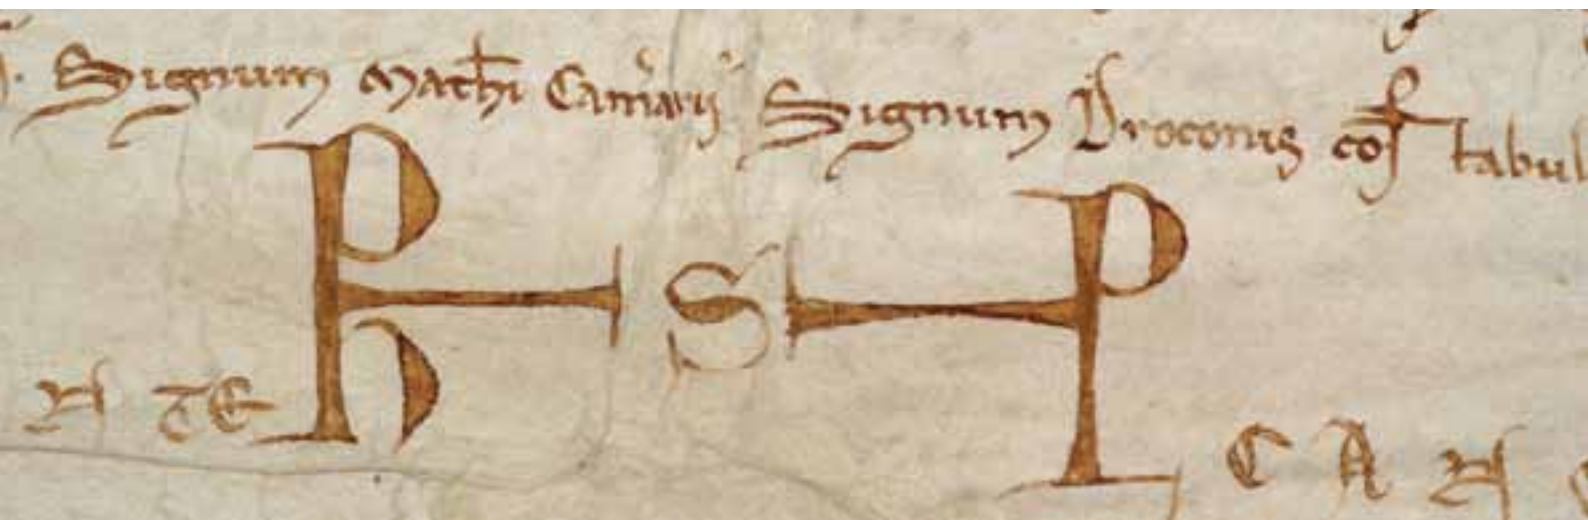 Signum Mathi Cam̄arii Signum Droconis cōſtabul
R S P
N TE
C A N